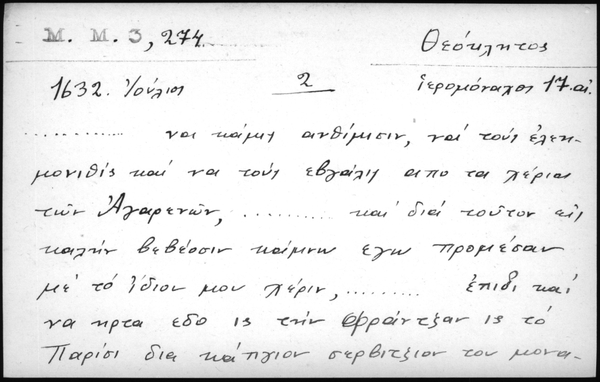 M. M. 3, 274
Θεόκλητος
1632. Ἰούλιος 2 ἱερομόναχος 17. αἰ.
............ να κάμη ανθίμισιν, νά τούς ἐλεη-
μονιθῆς καί να τούς εβγάλη απο τα χέρια
τῶν Ἀγαρενῶν, ......... καί διά τοῦτον εἰς
καλήν βεβέοσιν κάμνω εγω προμέσαν
μέ τό ἴδιον μου χέριν, ......... ἐπιδι καί
να ηρτα εδο ις την Φράντζαν ις τό
Παρίσι δια κάπγιον σερβιτζιον του μονα-